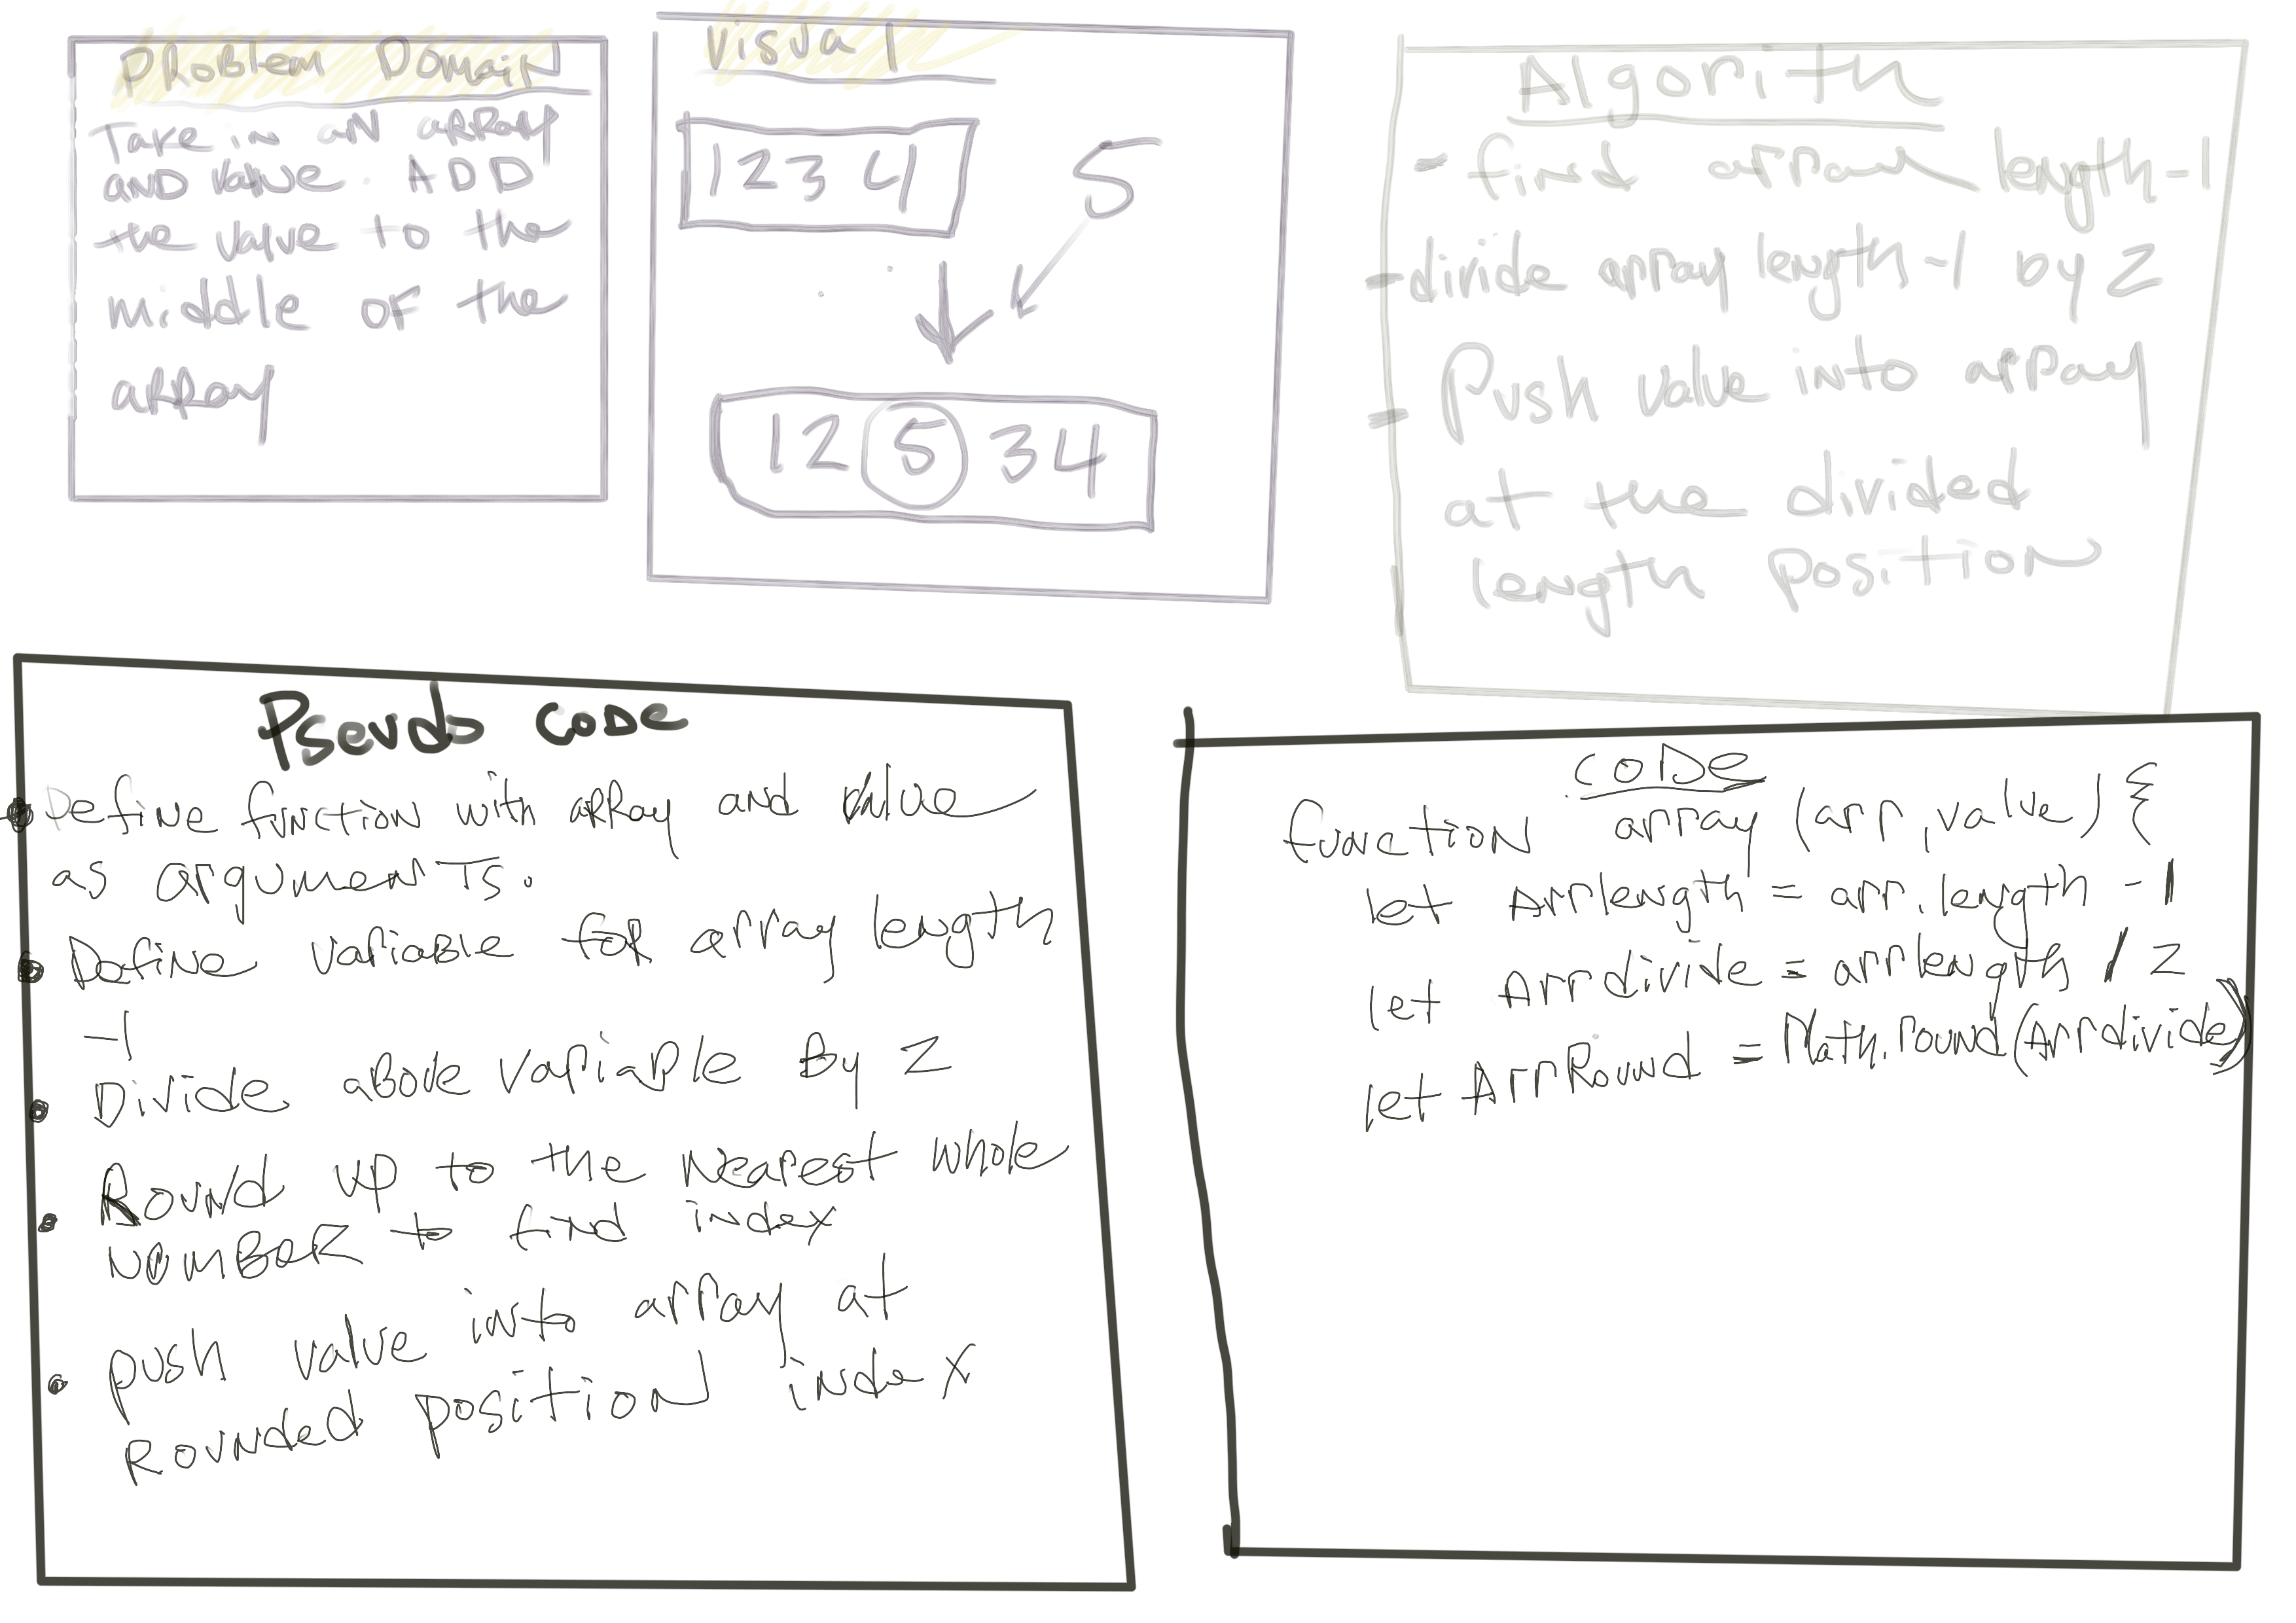 Problem Domain
Take in an array
and value. ADD
the value to the
middle of the
array
Visual
1 2 3 4
5
1 2 5 3 4
Algorith
- find array length-1
- divide array length-1 by 2
- Push value into array
at the divided
length position
Pseudo code
• Define function with array and value
as arguments.
• Define variable for array length
-1
• Divide above variable By 2
• Round up to the Nearest whole
NUMBER to find index
• push value into array at
Rounded position index
CODE
function array (arr, value) {
let Arrlength = arr.length - 1
let Arrdivide = arrlength / 2
let ArrRound = Math.round(Arrdivide)